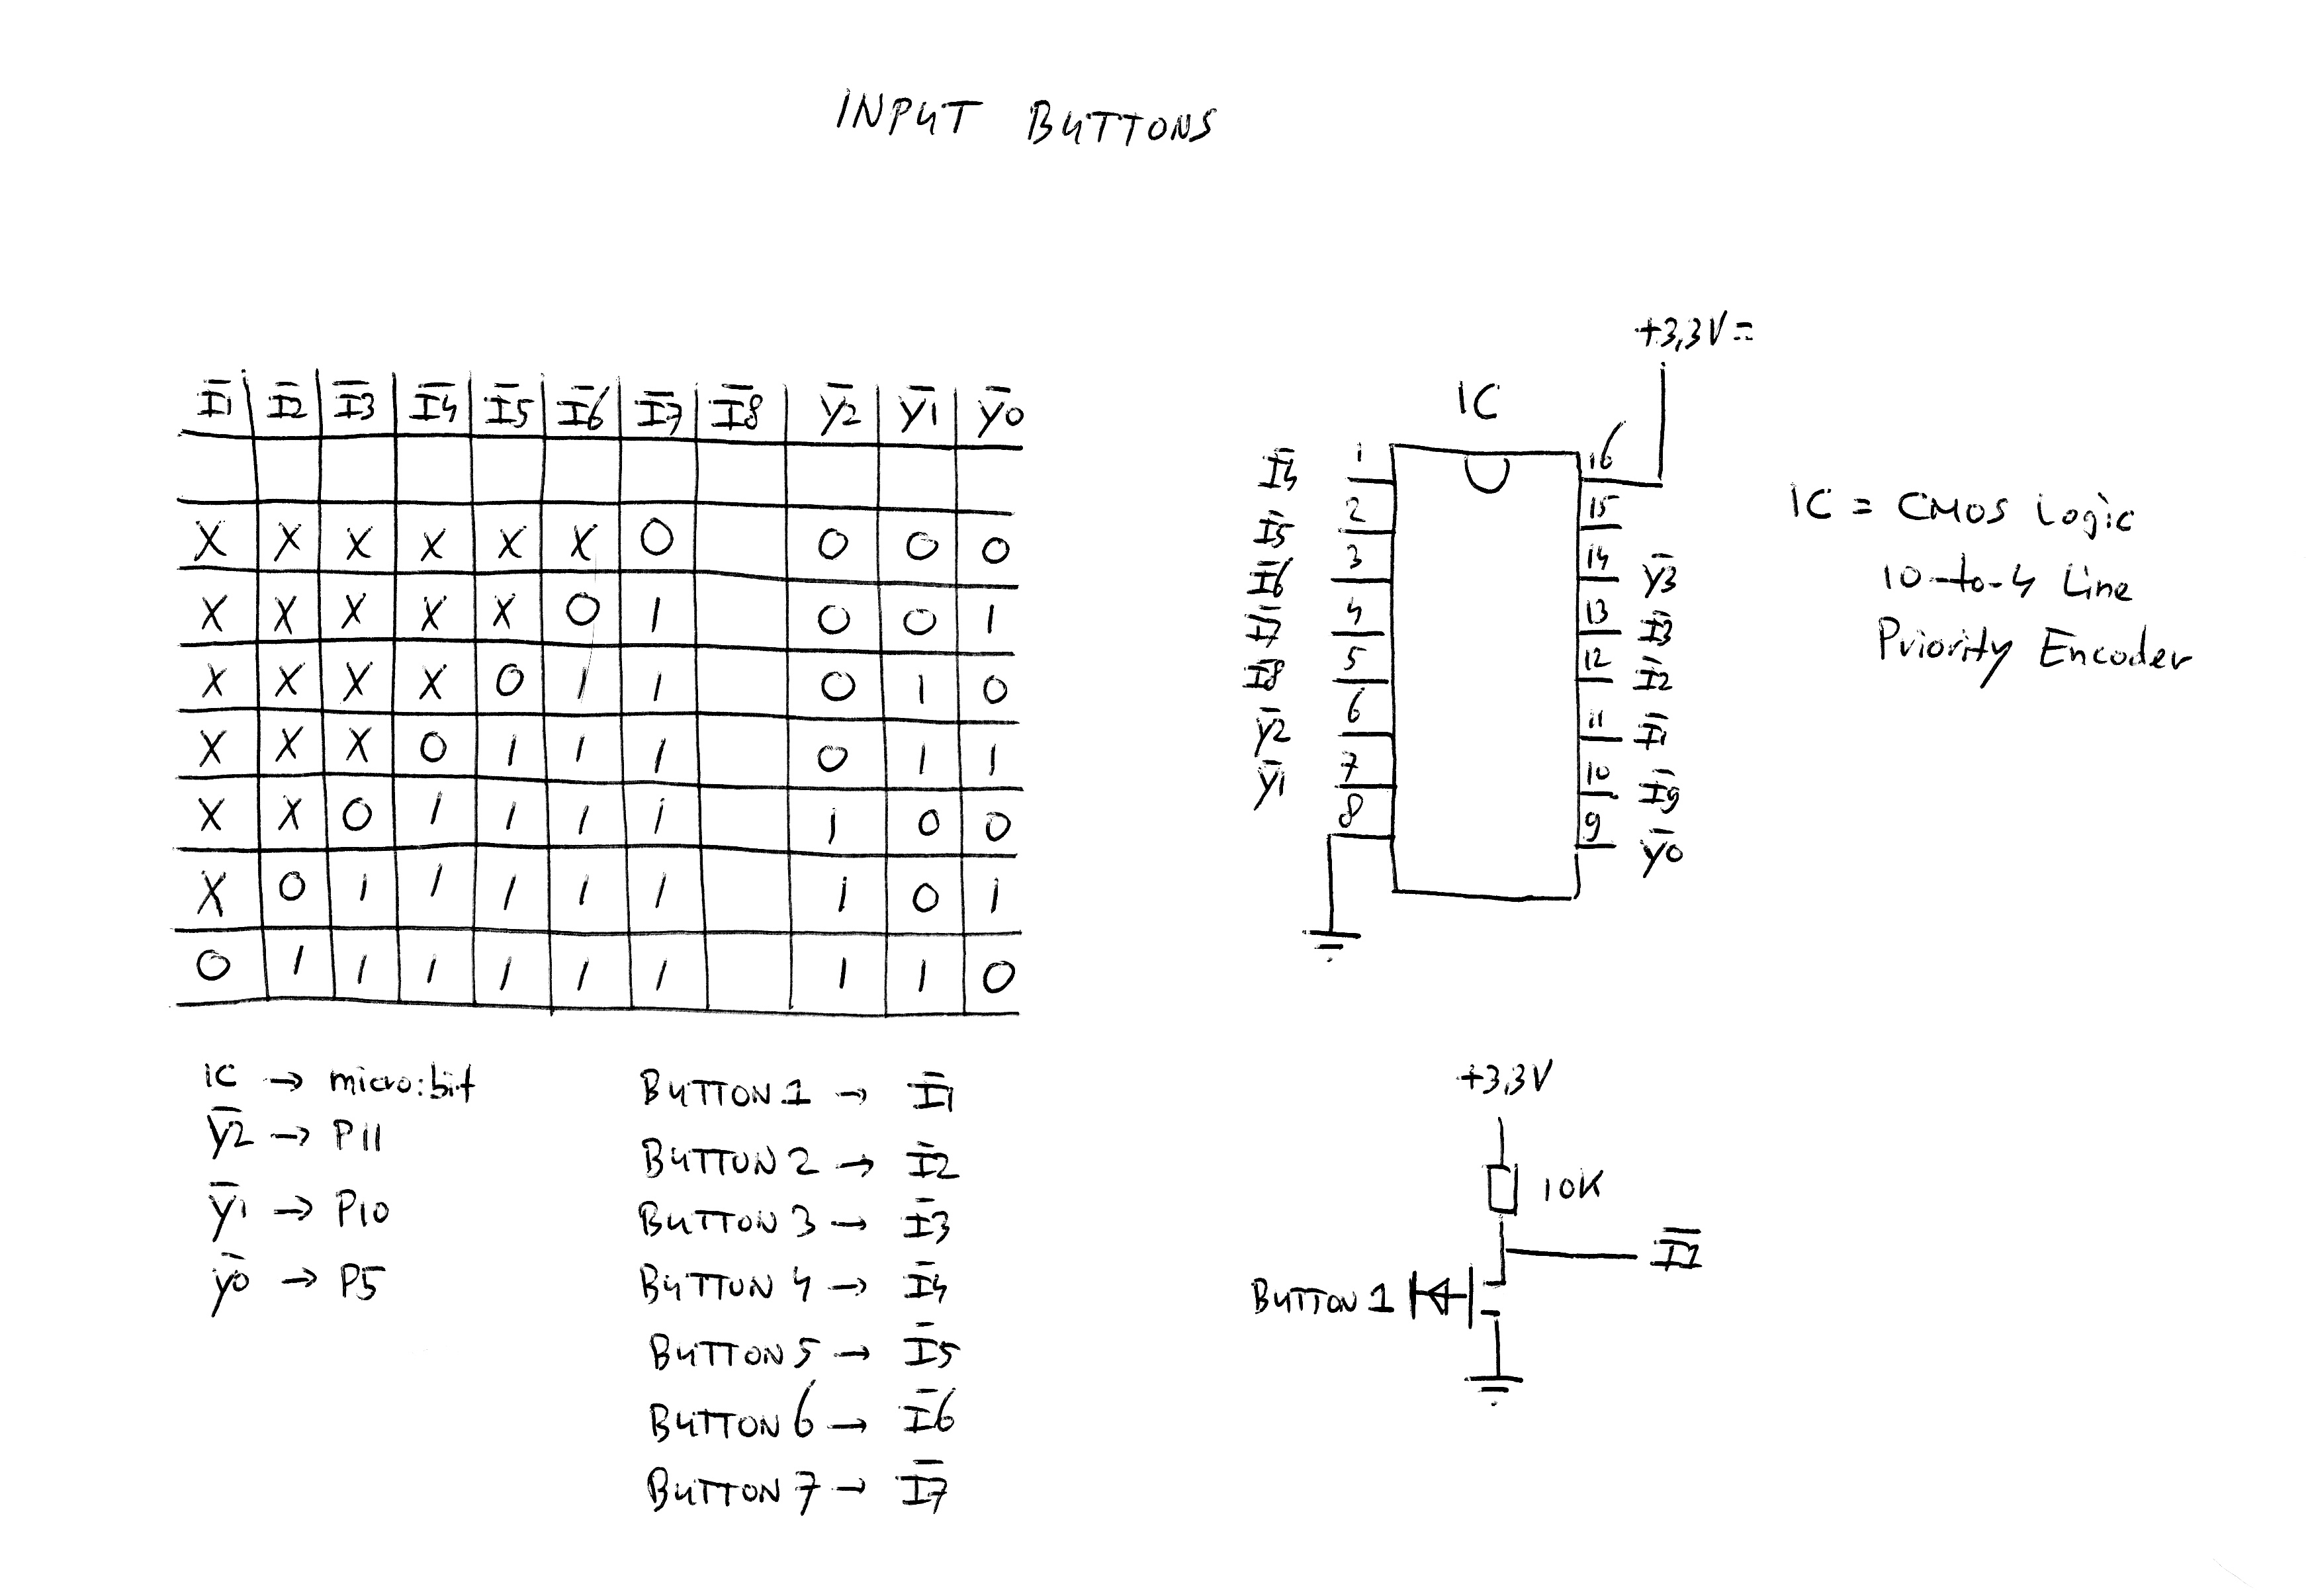 INPUT BUTTONS
I̅1 I̅2 I̅3 I̅4 I̅5 I̅6 I̅7 I̅8 Y̅2 Y̅1 Y̅0
X X X X X X 0 0 0 0
X X X X X 0 1 0 0 1
X X X X 0 1 1 0 1 0
X X X 0 1 1 1 0 1 1
X X 0 1 1 1 1 1 0 0
X 0 1 1 1 1 1 1 0 1
0 1 1 1 1 1 1 1 1 0
IC → micro:bit
Y̅2 → P11
Y̅1 → P10
Y̅0 → P5
BUTTON 1 → I̅1
BUTTON 2 → I̅2
BUTTON 3 → I̅3
BUTTON 4 → I̅4
BUTTON 5 → I̅5
BUTTON 6 → I̅6
BUTTON 7 → I̅7
+3,3V=
IC
I̅4 1 16
I̅5 2 15
I̅6 3 14 Y̅3
I̅7 4 13 I̅3
I̅8 5 12 I̅2
Y̅2 6 11 I̅1
Y̅1 7 10 I̅9
8 9 Y̅0
IC = CMOS Logic
10-to-4 Line
Priority Encoder
+3,3V
10K
I̅1
BUTTON 1